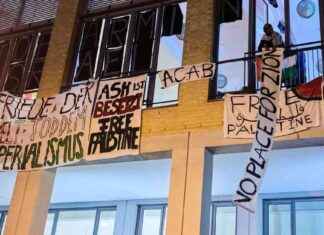 FRIEDE DEN
SÜDDEN
PERIALISMUS
ASH IST
BESETZT
FREE
PALESTINE
ACAB
NO PLACE FOR ZION
FREE
PALESTINE